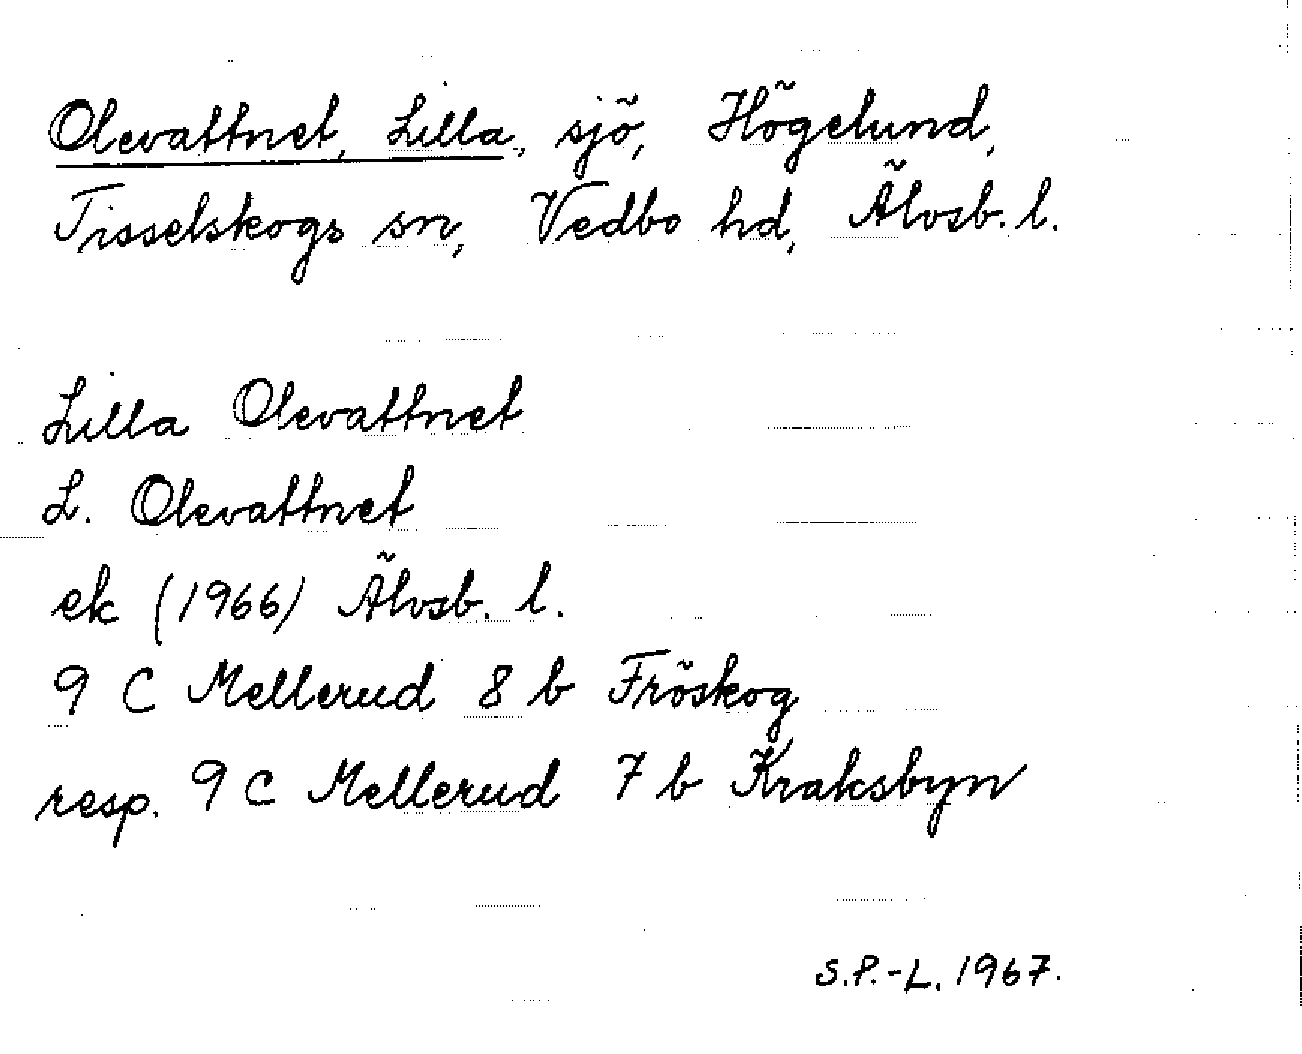 Olevattnet, Lilla, sjö, Högelund,
Tisselskogs sn, Vedbo hd, Älvsb. l.
Lilla Olevattnet
L. Olevattnet
ek (1966) Älvsb. l.
9 C Mellerud 8 b Fröskog
resp. 9 C Mellerud 7 b Kraksbyn
S.P.-L. 1967.